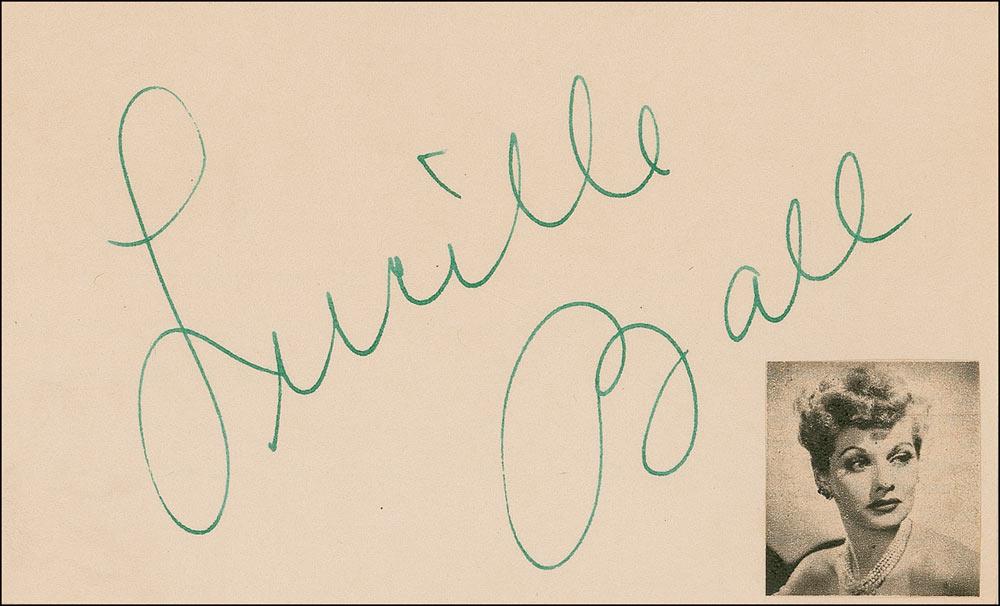 Lucille
Ball